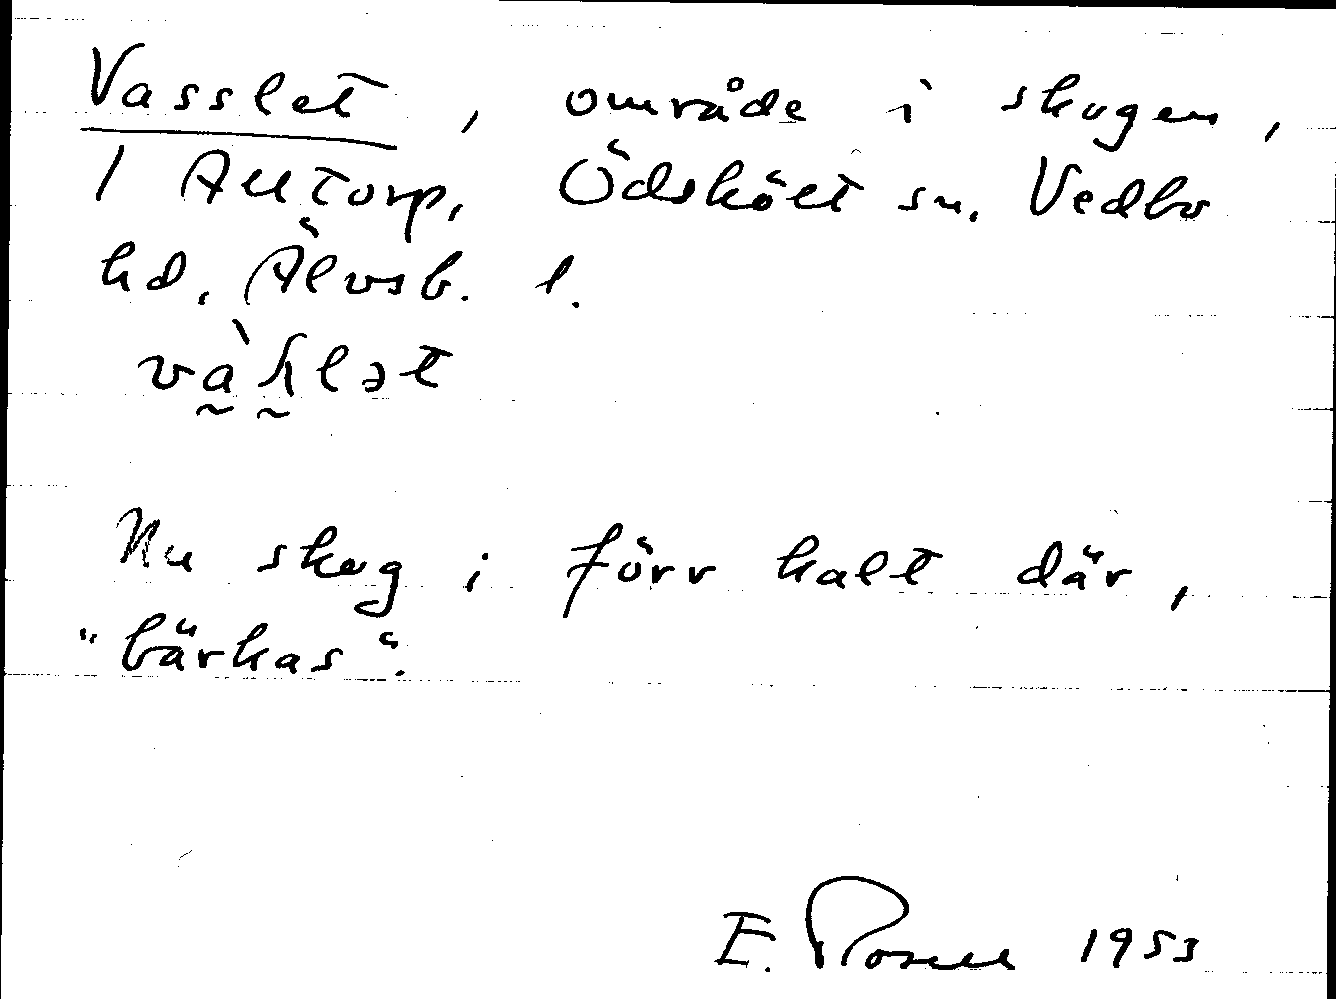 Vasslet, område i skogen,
1 Alltorp, Ödskölt sn. Vedbo
hd. Älvsb. l.
Nu skog; förr kalt där,
"bärkas".
E. Rosell 1953